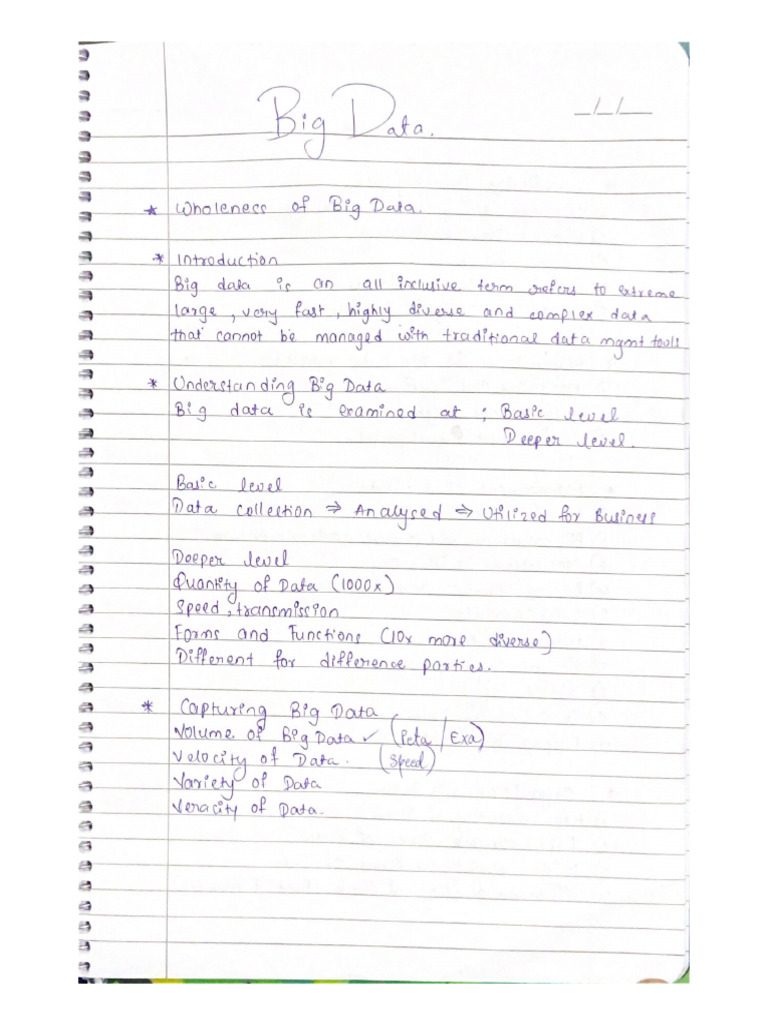 Big Data.
_/_/__
* Wholeness of Big Data.
* Introduction
Big data is an all inclusive term refers to extreme
large, very fast, highly diverse and complex data
that cannot be managed with traditional data mgmt tools
* Understanding Big Data
Big data is examined at : Basic level
Deeper level.
Basic level
Data collection ⇒ Analysed ⇒ Utilized for Business
Deeper level
Quantity of Data (1000x)
Speed, transmission
Forms and Functions (10x more diverse)
Different for difference parties.
* Capturing Big Data
Volume of Big Data ✓ (Peta / Exa)
Velocity of Data. (Speed)
Variety of Data
Veracity of Data.